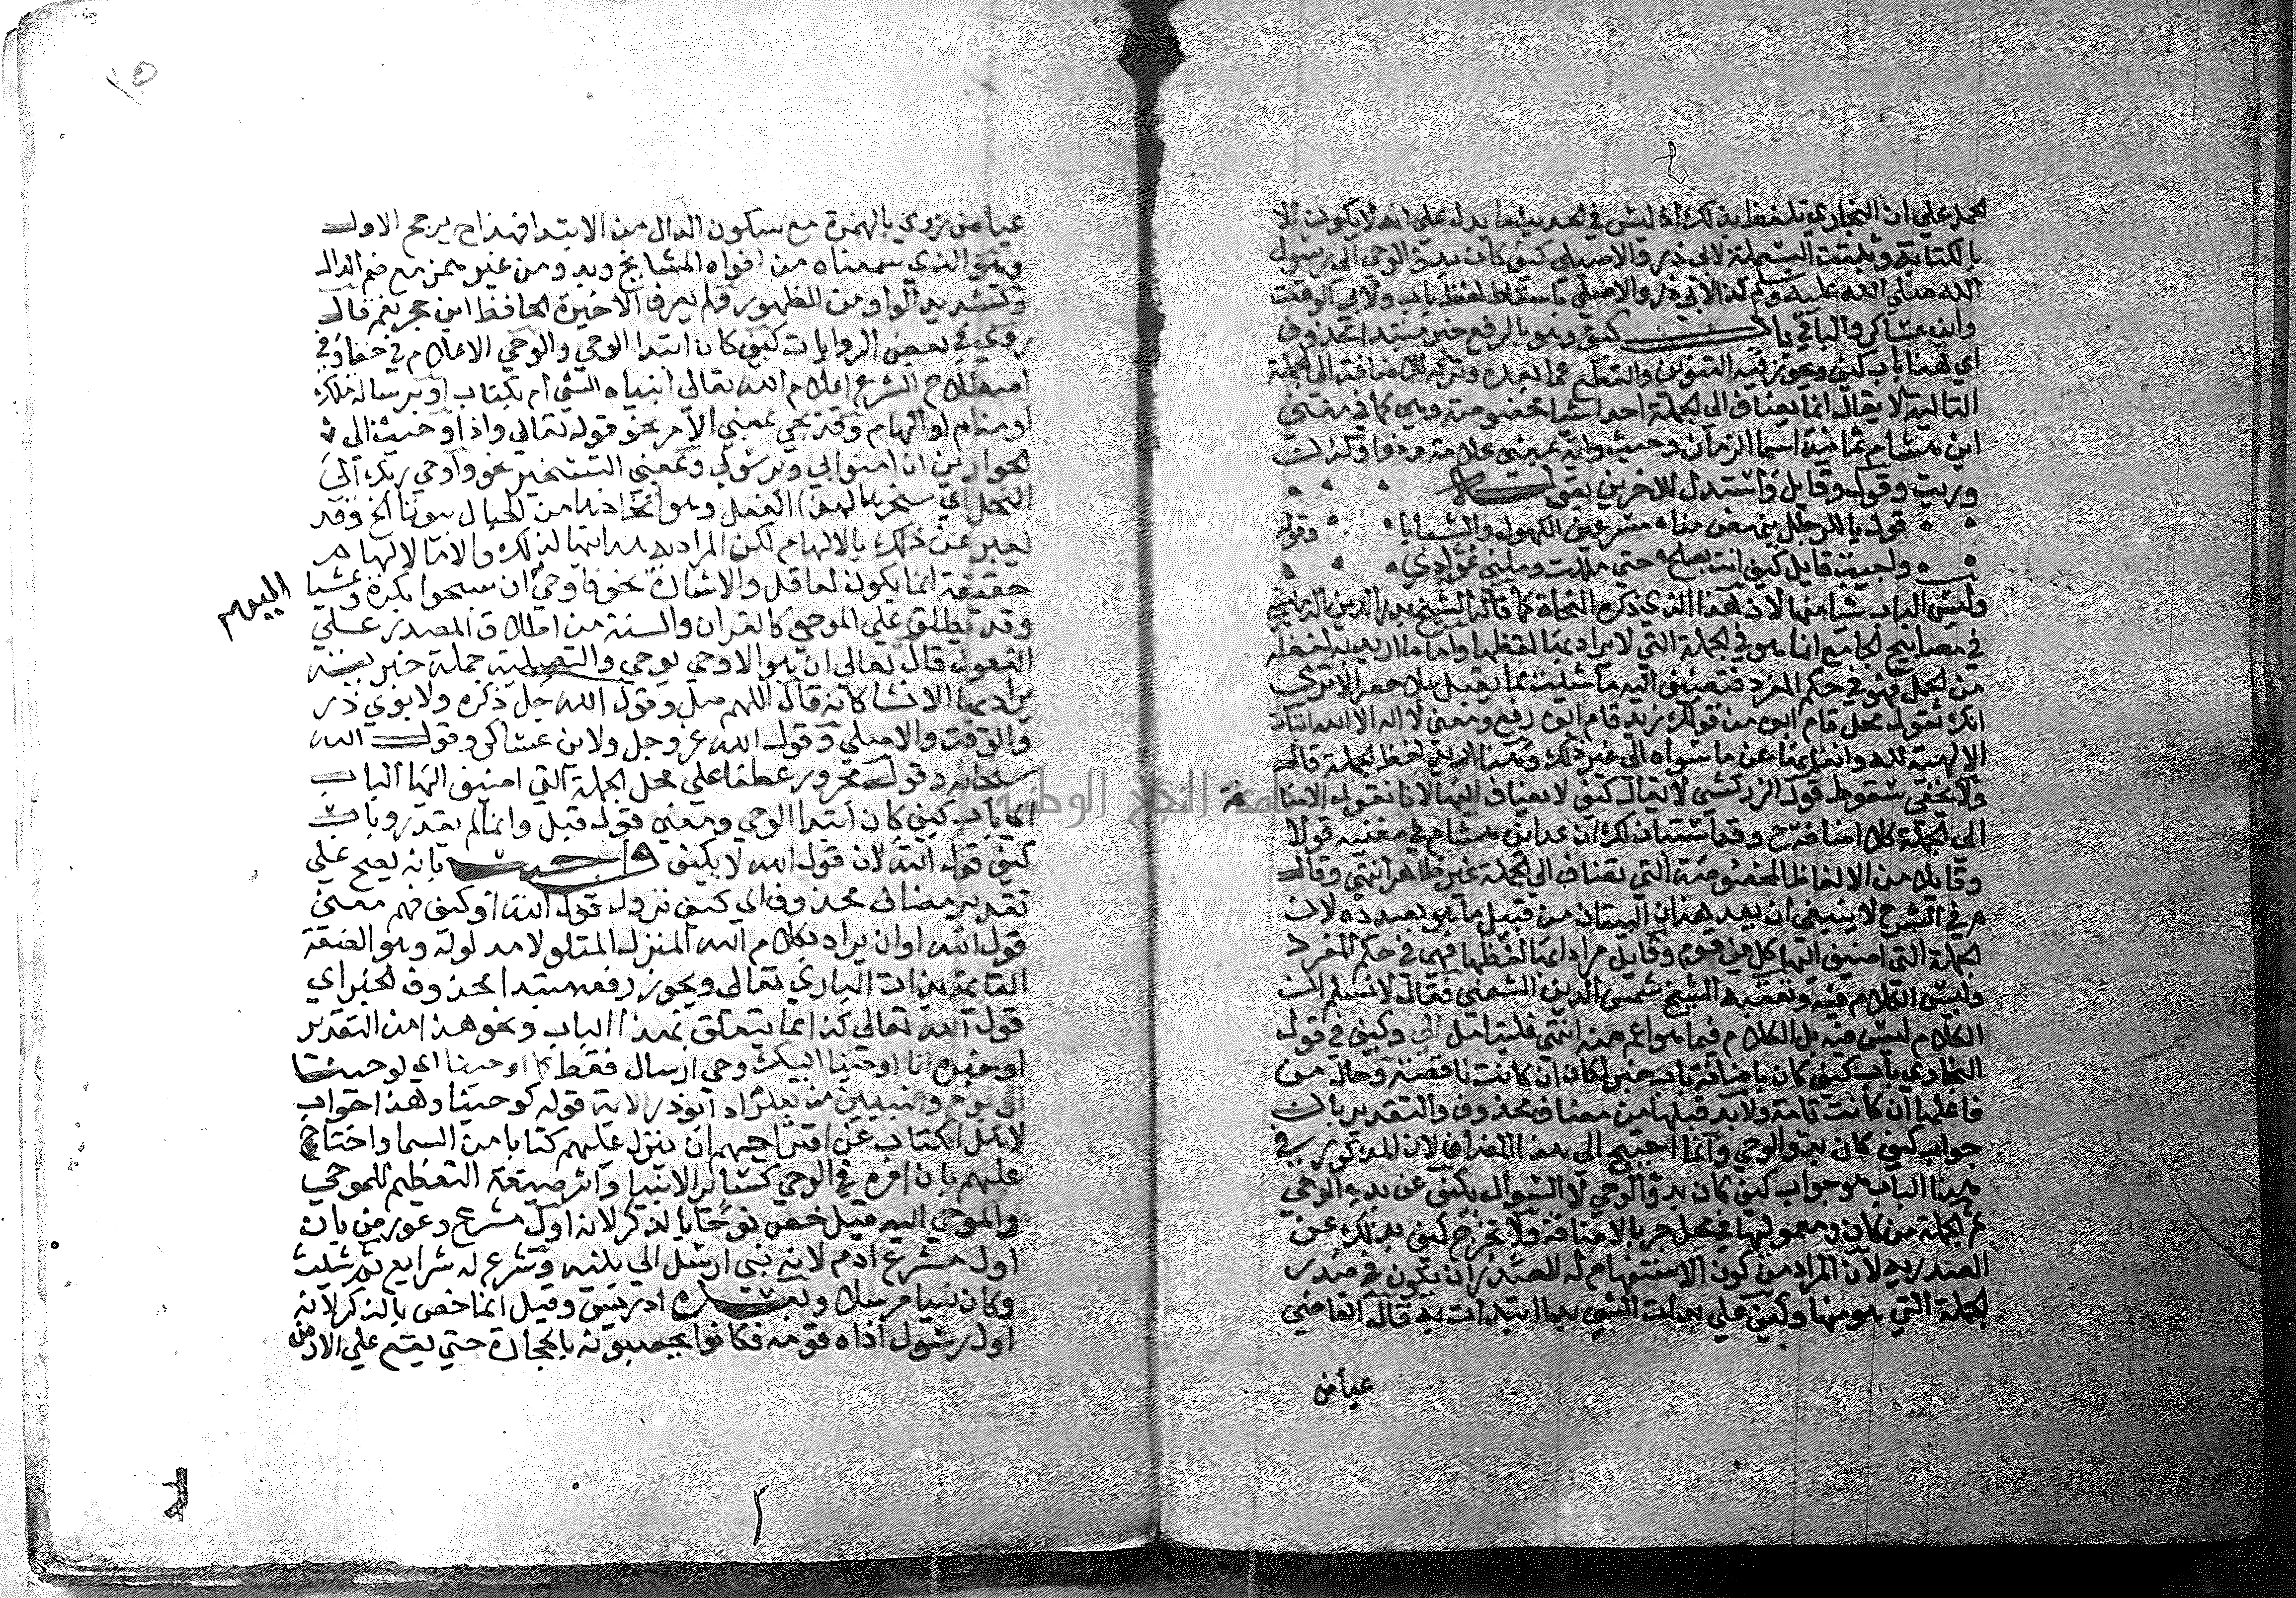 الحمل علي ان البخاري تلفظ بذلك اذ ليس في الحديث ما يدل علي انه لا يكون الا
بالكتابة وثبتت البسملة لابي ذر والاصيلي كيف كان بدؤ الوحي الي رسول
الله صلي الله عليه وسلم كذا لابي ذر والاصيلي باسقاط لفظ باب ولابي الوقت
وابن عساكر والباقي باب كيف وهو بالرفع خبر مبتدا محذوف
اي هذا باب كيف ويجوز فيه التنوين والقطع عما بعده وتركه للاضافة الي الجملة
التالية لا يقال انما يضاف الي الجملة احد اشيا مخصوصة وهي كما في مغني
ابن هشام ثمانية اسما الزمان وحيث واية بمعني علامة وذو وكذا لدن
وريث وقول وقايل واستدل للاخرين بقوله
قول يا للرجال ينهض منا • مسرعين الكهول والشبانا • وقوله
واجبت قايل كيف انت بصالح • حتي مللت وملني عوادي •
وليس الباب شيا منها لان هذا الذي ذكره النحاة كما قاله الشيخ بدر الدين الدماميني
في مصابيح الجامع انما هو في الجملة التي لا يراد بها لفظها واما ما اريد به لفظه
من الجمل فهو في حكم المفرد فتضيف اليه ما شئت مما يقبل بلا حصر الا تري
انك تقول محل قام ابوه من قولك زيد قام ابوه رفع ومعني لا اله الا الله اثبات
الالهية لله وانفاؤها عن ما سواه الي غير ذلك وهنا اريد لفظ الجملة قال
ولا يخفي سقوط قول الزركشي لا يقال كيف لا يضاف اليها لانا نقول الاضافة
الي الجملة كلا اضافة ح وقد استبان لك ان عد ابن هشام في مغنيه قولا
وقايلا من الالفاظ المخصوصة التي تضاف الي الجملة غير ظاهر انتهي وقال
م في الشرح لا ينبغي ان يعد هذان البيتان من قبيل ما هو بصدده لان
الجملة التي اضيف اليها كل من قول وقايل مراد بها لفظها فهي في حكم المفرد
وليس الكلام فيه وتعقبه الشيخ شمس الدين الشمني فقال لا نسلم ان
الكلام ليس فيه بل الكلام فيما هو اعم منه انتهي فليتامل الي وكيف في قول
البخاري باب كيف كان باضافة باب خبر لكان ان كانت ناقصة وحال من
فاعلها ان كانت تامة ولا بد قبلها من مضاف محذوف والتقدير باب
جواب كيف كان بدؤ الوحي وانما احتيج الي هذا المضاف لان المذكور في
هذا الباب هو جواب كيف كان بدؤ الوحي لا السوال بكيف عن بدء الوحي
ثم الجملة من كان ومعموليها في محل جر بالاضافة ولا تخرج كيف بذلك عن
الصدرية لان المراد من كون الاستفهام له الصدر ان يكون في صدر
الجملة التي هو منها وكيف علي بدات الشي بدءا ابتدات به قال القاضي
عياض
عياض روي بالهمزة مع سكون الدال من الابتدا فهذا ح يرجح الاول
وهو الذي سمعناه من افواه المشايخ وبدو من غير همز مع ضم الدال
وتشديد الواو من الظهور ولم يعرف الاخيرة الحافظ ابن حجر نعم قال
روي في بعض الروايات كيف كان ابتدا الوحي والوحي الاعلام في خفاء وفي
اصطلاح الشرع اعلام الله تعالي انبياه الشي ام بكتاب او برسالة ملك
او منام او الهام وقد يجي بمعني الامر نحو قوله تعالي واذ اوحيت الي
الحواريين ان امنوا بي وبرسولي وبمعني التسخير نحو واوحي ربك الي
النحل اي سخرها لهذا الفعل وهو اتخاذها من الجبال بيوتا الخ وقد
يعبر عن ذلك بالالهام لكن المراد به هدايتها لذلك والا فالالهام
حقيقة انما يكون لعاقل والاشارة نحو فاوحي ان سبحوا بكرة وعشيا
اليهم
وقد يطلق علي الموحي كالقران والسنة من اطلاق المصدر علي
المفعول قال تعالي ان هو الا وحي يوحي والتصلية جملة خبرية
يراد بها الانشا كانه قال اللهم صل وقول الله جل ذكره ولابوي ذر
والوقت والاصيلي وقول الله عز وجل ولابن عساكر وقول الله
سبحانه وقول مجرور عطفا علي محل الجملة التي اضيف اليها الباب
اي باب كيف كان ابتدا الوحي ومعني قول قيل وانما لم يقدر وباب
كيف قول الله لان قول الله لا يكيف واجيب بانه يصح علي
تقدير مضاف محذوف اي كيف نزول قول الله او كيف فهم معني
قول الله او ان يراد بكلام الله المنزل المتلو لا مدلوله وهو الصفة
القايمة بذات الباري تعالي ويجوز رفعه مبتدا محذوف الخبر اي
قول الله تعالي كذا مما يتعلق بهذا الباب ونحو هذا من التقدير
او خبره انا اوحينا اليك وحي ارسال فقط كما اوحينا اي كوحينا
الي نوح والنبيين من بعده زاد ابو ذر الاية قوله كوحينا وهذا جواب
لاهل الكتاب عن اقتراحهم ان ينزل عليهم كتابا من السما واحتجاج
عليهم بان امره في الوحي كسائر الانبيا واثر صيغة التعظيم للموحي
والموحي اليه قيل خص نوحا بالذكر لانه اول مشرع وعورض بان
اول مشرع ادم لانه نبي ارسل الي بنيه وشرع له شرايع ثم شيث
وكان نبيا مرسلا وبعده ادريس وقيل انما خص بالذكر لانه
اول رسول اذاه قومه فكانوا يحصبونه بالحجارة حتي يقع علي الارض
جامعة النجاح الوطنية